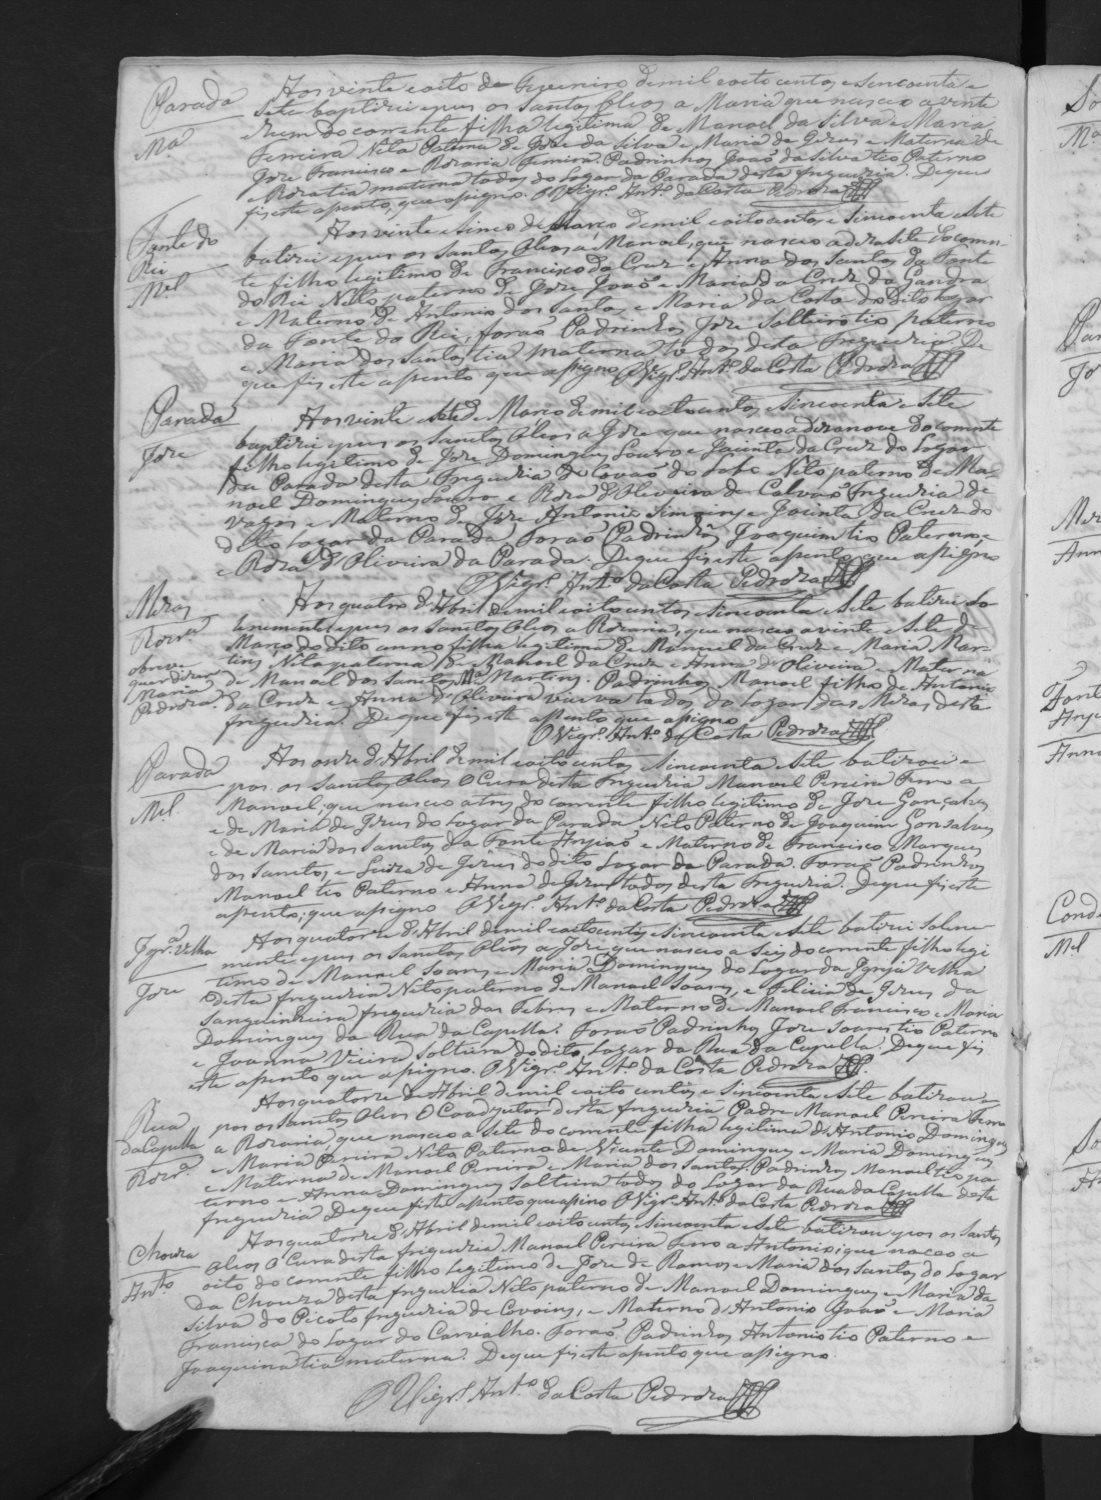 Parada
Mª
Aos vinte e oito de Fevereiro de mil e oito centos e sincoenta e
sete baptizei e pus os Santos Oleos a Maria que nasceo a vinte
e hum do corrente filha legitima de Manoel da Silva e Maria
Ferreira Neta Paterna de Jose da Silva e Maria de Jezus e Materna de
Jose Francisco e Rozaria Ferreira. Padrinhos Joaõ da Silva tio Paterno
e Roza tia materna todos do Lugar da Parada desta freguezia. De que
fis este assento, que assigno. O Vigrº Antº da Costa Pedroza
Fonte do
Rei
Mel
Aos vinte e sinco de Março de mil e oito centos e sincoenta e sete
batizei e pus os Santos Oleos a Manoel, que nasceo a dezasete do corren-
te filho legitimo de Francisco da Cruz e Anna dos Santos da Fonte
do Rei Neto paterno de Jose Joaõ e Maria da Cruz da Gandra
e Materno de Antonio dos Santos e Maria da Costa do dito Lugar
da Fonte do Rei, foraõ Padrinhos Jose Solteiro tio paterno
e Maria dos Santos tia materna todos desta Freguezia. De
que fis este assento que assigno O Vigrº Antº da Costa Pedroza
Parada
Joze
Aos vinte e sete de Março de mil e oito centos e sincoenta e sete
baptizei e pus os Santos Oleos a Joze que nasceo a dezanove do corrente
filho legitimo de Joze Domingues Louro e Jacinta da Cruz do Lugar
da Parada desta Freguezia do Covaõ do Lobo Neto paterno de Ma-
noel Domingues Louro e Roza d'Oliveira de Calvaõ Freguezia de
Vagos e Materno de Joze Antonio Simoins e Jacinta da Cruz do
dito Lugar da Parada, foraõ Padrinhos Joaquim tio Paterno e
e Roza d'Oliveira da Parada. De que fis este assento que assigno
O Vigrº Antº da Costa Pedroza
Mezas
Rozrª
obreve
quer dizer
Maria
Pedroza
Aos quatro d'Abril de mil e oito centos e sincoenta e sete batizei so-
lenemente e pus os Santos Oleos a Rozaria, que nasceo a vinte e sete de
Março do dito anno filha legitima de Manoel da Cruz e Maria Mar-
tins Neta paterna de Manoel da Cruz e Anna d'Oliveira e Materna
de Manoel dos Santos e Mª Martins. Padrinhos Manoel filho de Antonio
da Cruz e Anna d'Oliveira viuva todos do Lugar das Mezas desta
freguezia. De que fis este assento que assigno
O Vigrº Antº da Costa Pedroza
Parada
Mel
Aos onze d'Abril de mil e oito centos e sincoenta e sete batizou e
pos os Santos Oleos O Cura desta freguezia Manoel Pereira Ferro a
Manoel, que nasceo a tres do corrente filho legitimo de Joze Gonçalves
e de Maria de Jezus do Lugar da Parada Neto Paterno de Joaquim Gonsalves
e de Maria dos Santos da Fonte Anjiaõ e Materno de Francisco Marques
dos Santos, e Luiza de Jezus do dito Lugar da Parada. Foraõ Padrinhos
Manoel tio Paterno e Anna de Jezus todos desta Freguezia. De que fis este
assento, que assigno O Vigrº Antº da Costa Pedroza
Igrª Velha
Joze
Aos quatorze d'Abril de mil e oito centos e sincoenta e sete batizei solene-
mente e pus os Santos Oleos a Joze que nasceo a seis do corrente filho legi
timo de Manoel Soares e Maria Domingues do Lugar da Igreja Velha
desta freguezia Neto paterno de Manoel Soares, e Felicia de Jezus da
Sanguinheira freguezia das Febres e Materno de Manoel Francisco e Maria
Domingues da Rua da Capella. Foraõ Padrinhos Joze Soares tio Paterno
e Joanna Vieira Solteira do dito Lugar da Rua da Capella. De que fis
este assento que assigno. O Vigrº Antº da Costa Pedroza
Rua
da Capella
Rozrª
Aos quatorze d'Abril de mil e oito centos e sincoenta e sete batizou e
pos os Santos Oleos O Coadjutor desta freguezia Padre Manoel Pereira Ferro
a Rozaria, que nasceo a sete do corrente filha legitima d'Antonio Domingues
e Maria Pereira Neta Paterna de Vicente Domingues e Maria Domingues
e Materna de Manoel Pereira e Maria dos Santos. Padrinhos Manoel tio pa-
terno e Anna Domingues Solteira todos do Lugar da Rua da Capella desta
freguezia De que fis este assento que assino O Vigrº Antº da Costa Pedroza
Chouza
Antº
Aos quatorze d'Abril de mil e oito centos e sincoenta e sete batizou e pos os Santos
Oleos O Cura desta freguezia Manoel Pereira Ferro a Antonio, que nasceo a
oito do corrente filho legitimo de Joze de Ramos e Maria dos Santos do Lugar
da Chouza desta freguezia Neto paterno de Manoel Domingues e Maria da
Silva do Picoto freguezia de Covoins, e Materno d'Antonio Joaõ e Maria
Francisca do Lugar do Carvalho. Foraõ Padrinhos Antonio tio Paterno e
Joaquina tia materna. De que fis este assento que assigno.
O Vigrº Antº da Costa Pedroza